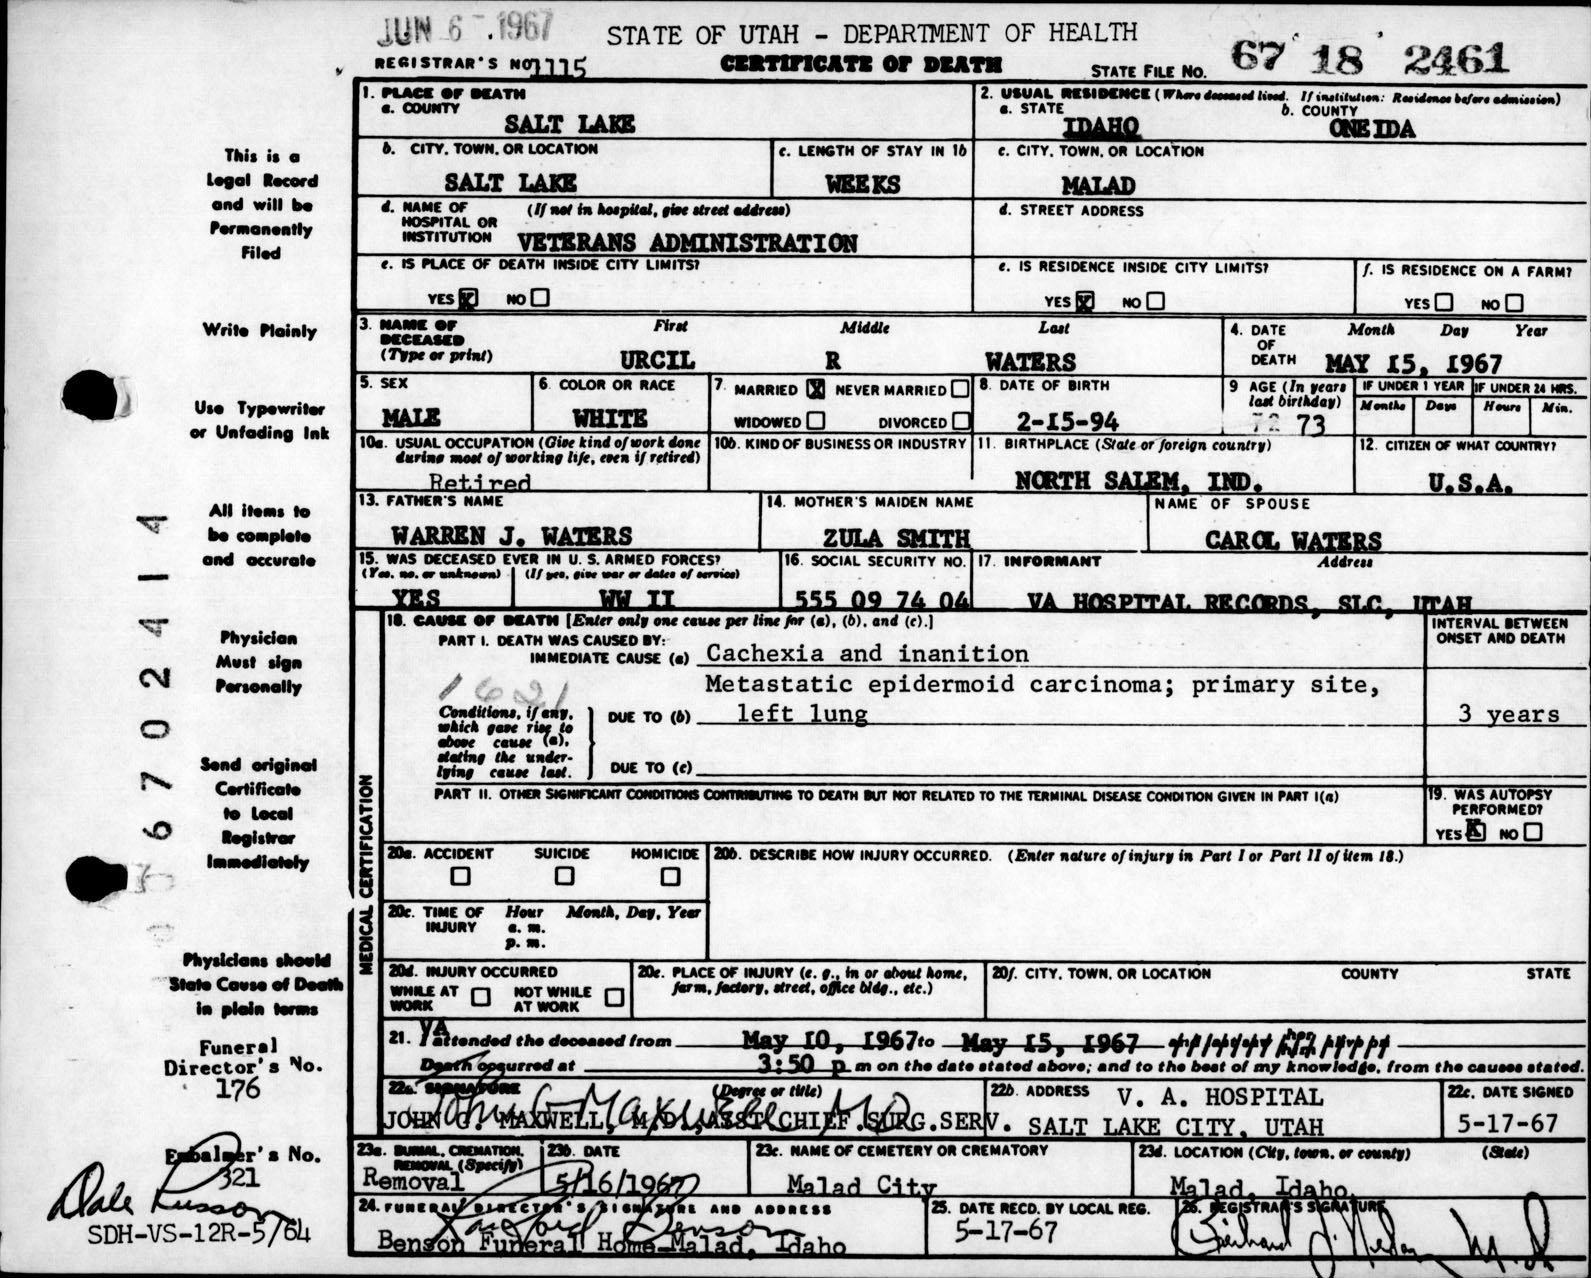 JUN 6 1967
STATE OF UTAH - DEPARTMENT OF HEALTH
REGISTRAR'S NO 1115
CERTIFICATE OF DEATH
STATE FILE NO. 67 18 2461
This is a
Legal Record
and will be
Permanently
Filed
Write Plainly
Use Typewriter
or Unfading Ink
All items to
be complete
and accurate
Physician
Must sign
Personally
Send original
Certificate
to Local
Registrar
Immediately
Physicians should
State Cause of Death
in plain terms
Funeral
Director's No.
176
Embalmer's No.
321
Dale Russon
SDH-VS-12R-5/64
6702414
1. PLACE OF DEATH
a. COUNTY
SALT LAKE
2. USUAL RESIDENCE (Where deceased lived. If institution: Residence before admission)
a. STATE b. COUNTY
IDAHO ONEIDA
b. CITY, TOWN, OR LOCATION
SALT LAKE
c. LENGTH OF STAY IN 1b
WEEKS
c. CITY, TOWN, OR LOCATION
MALAD
d. NAME OF HOSPITAL OR INSTITUTION (If not in hospital, give street address)
VETERANS ADMINISTRATION
d. STREET ADDRESS
e. IS PLACE OF DEATH INSIDE CITY LIMITS?
YES X NO
e. IS RESIDENCE INSIDE CITY LIMITS?
YES X NO
f. IS RESIDENCE ON A FARM?
YES NO
3. NAME OF DECEASED (Type or print) First Middle Last
URCIL R WATERS
4. DATE OF DEATH Month Day Year
MAY 15, 1967
5. SEX
MALE
6. COLOR OR RACE
WHITE
7. MARRIED X NEVER MARRIED
WIDOWED DIVORCED
8. DATE OF BIRTH
2-15-94
9 AGE (In years last birthday)
72 73
IF UNDER 1 YEAR IF UNDER 24 HRS.
Months Days Hours Min.
10a. USUAL OCCUPATION (Give kind of work done during most of working life, even if retired)
Retired
10b. KIND OF BUSINESS OR INDUSTRY
11. BIRTHPLACE (State or foreign country)
NORTH SALEM, IND.
12. CITIZEN OF WHAT COUNTRY?
U.S.A.
13. FATHER'S NAME
WARREN J. WATERS
14. MOTHER'S MAIDEN NAME
ZULA SMITH
NAME OF SPOUSE
CAROL WATERS
15. WAS DECEASED EVER IN U. S. ARMED FORCES?
(Yes, no, or unknown) (If yes, give war or dates of service)
YES WW II
16. SOCIAL SECURITY NO.
555 09 74 04
17. INFORMANT Address
VA HOSPITAL RECORDS, SLC, UTAH
MEDICAL CERTIFICATION
18. CAUSE OF DEATH [Enter only one cause per line for (a), (b), and (c).]
INTERVAL BETWEEN ONSET AND DEATH
PART I. DEATH WAS CAUSED BY:
IMMEDIATE CAUSE (a) Cachexia and inanition
1621
Metastatic epidermoid carcinoma; primary site,
Conditions, if any, which gave rise to above cause (a), stating the underlying cause last.
DUE TO (b) left lung 3 years
DUE TO (c)
PART II. OTHER SIGNIFICANT CONDITIONS CONTRIBUTING TO DEATH BUT NOT RELATED TO THE TERMINAL DISEASE CONDITION GIVEN IN PART I(a)
19. WAS AUTOPSY PERFORMED?
YES X NO
20a. ACCIDENT SUICIDE HOMICIDE
20b. DESCRIBE HOW INJURY OCCURRED. (Enter nature of injury in Part I or Part II of item 18.)
20c. TIME OF INJURY Hour Month, Day, Year
a. m.
p. m.
20d. INJURY OCCURRED
WHILE AT WORK NOT WHILE AT WORK
20e. PLACE OF INJURY (e. g., in or about home, farm, factory, street, office bldg., etc.)
20f. CITY, TOWN, OR LOCATION COUNTY STATE
21. VA attended the deceased from May 10, 1967 to May 15, 1967
Death occurred at 3:50 p m on the date stated above; and to the best of my knowledge, from the causes stated.
22a. SIGNATURE (Degree or title)
John G. Maxwell MD
JOHN G. MAXWELL, M.D., ASST. CHIEF. SURG. SERV.
22b. ADDRESS V. A. HOSPITAL
SALT LAKE CITY, UTAH
22c. DATE SIGNED
5-17-67
23a. BURIAL, CREMATION, REMOVAL (Specify)
Removal
23b. DATE
5/16/1967
23c. NAME OF CEMETERY OR CREMATORY
Malad City
23d. LOCATION (City, town, or county) (State)
Malad, Idaho
24. FUNERAL DIRECTOR'S SIGNATURE AND ADDRESS
Benson Funeral Home-Malad, Idaho
25. DATE RECD. BY LOCAL REG.
5-17-67
26. REGISTRAR'S SIGNATURE